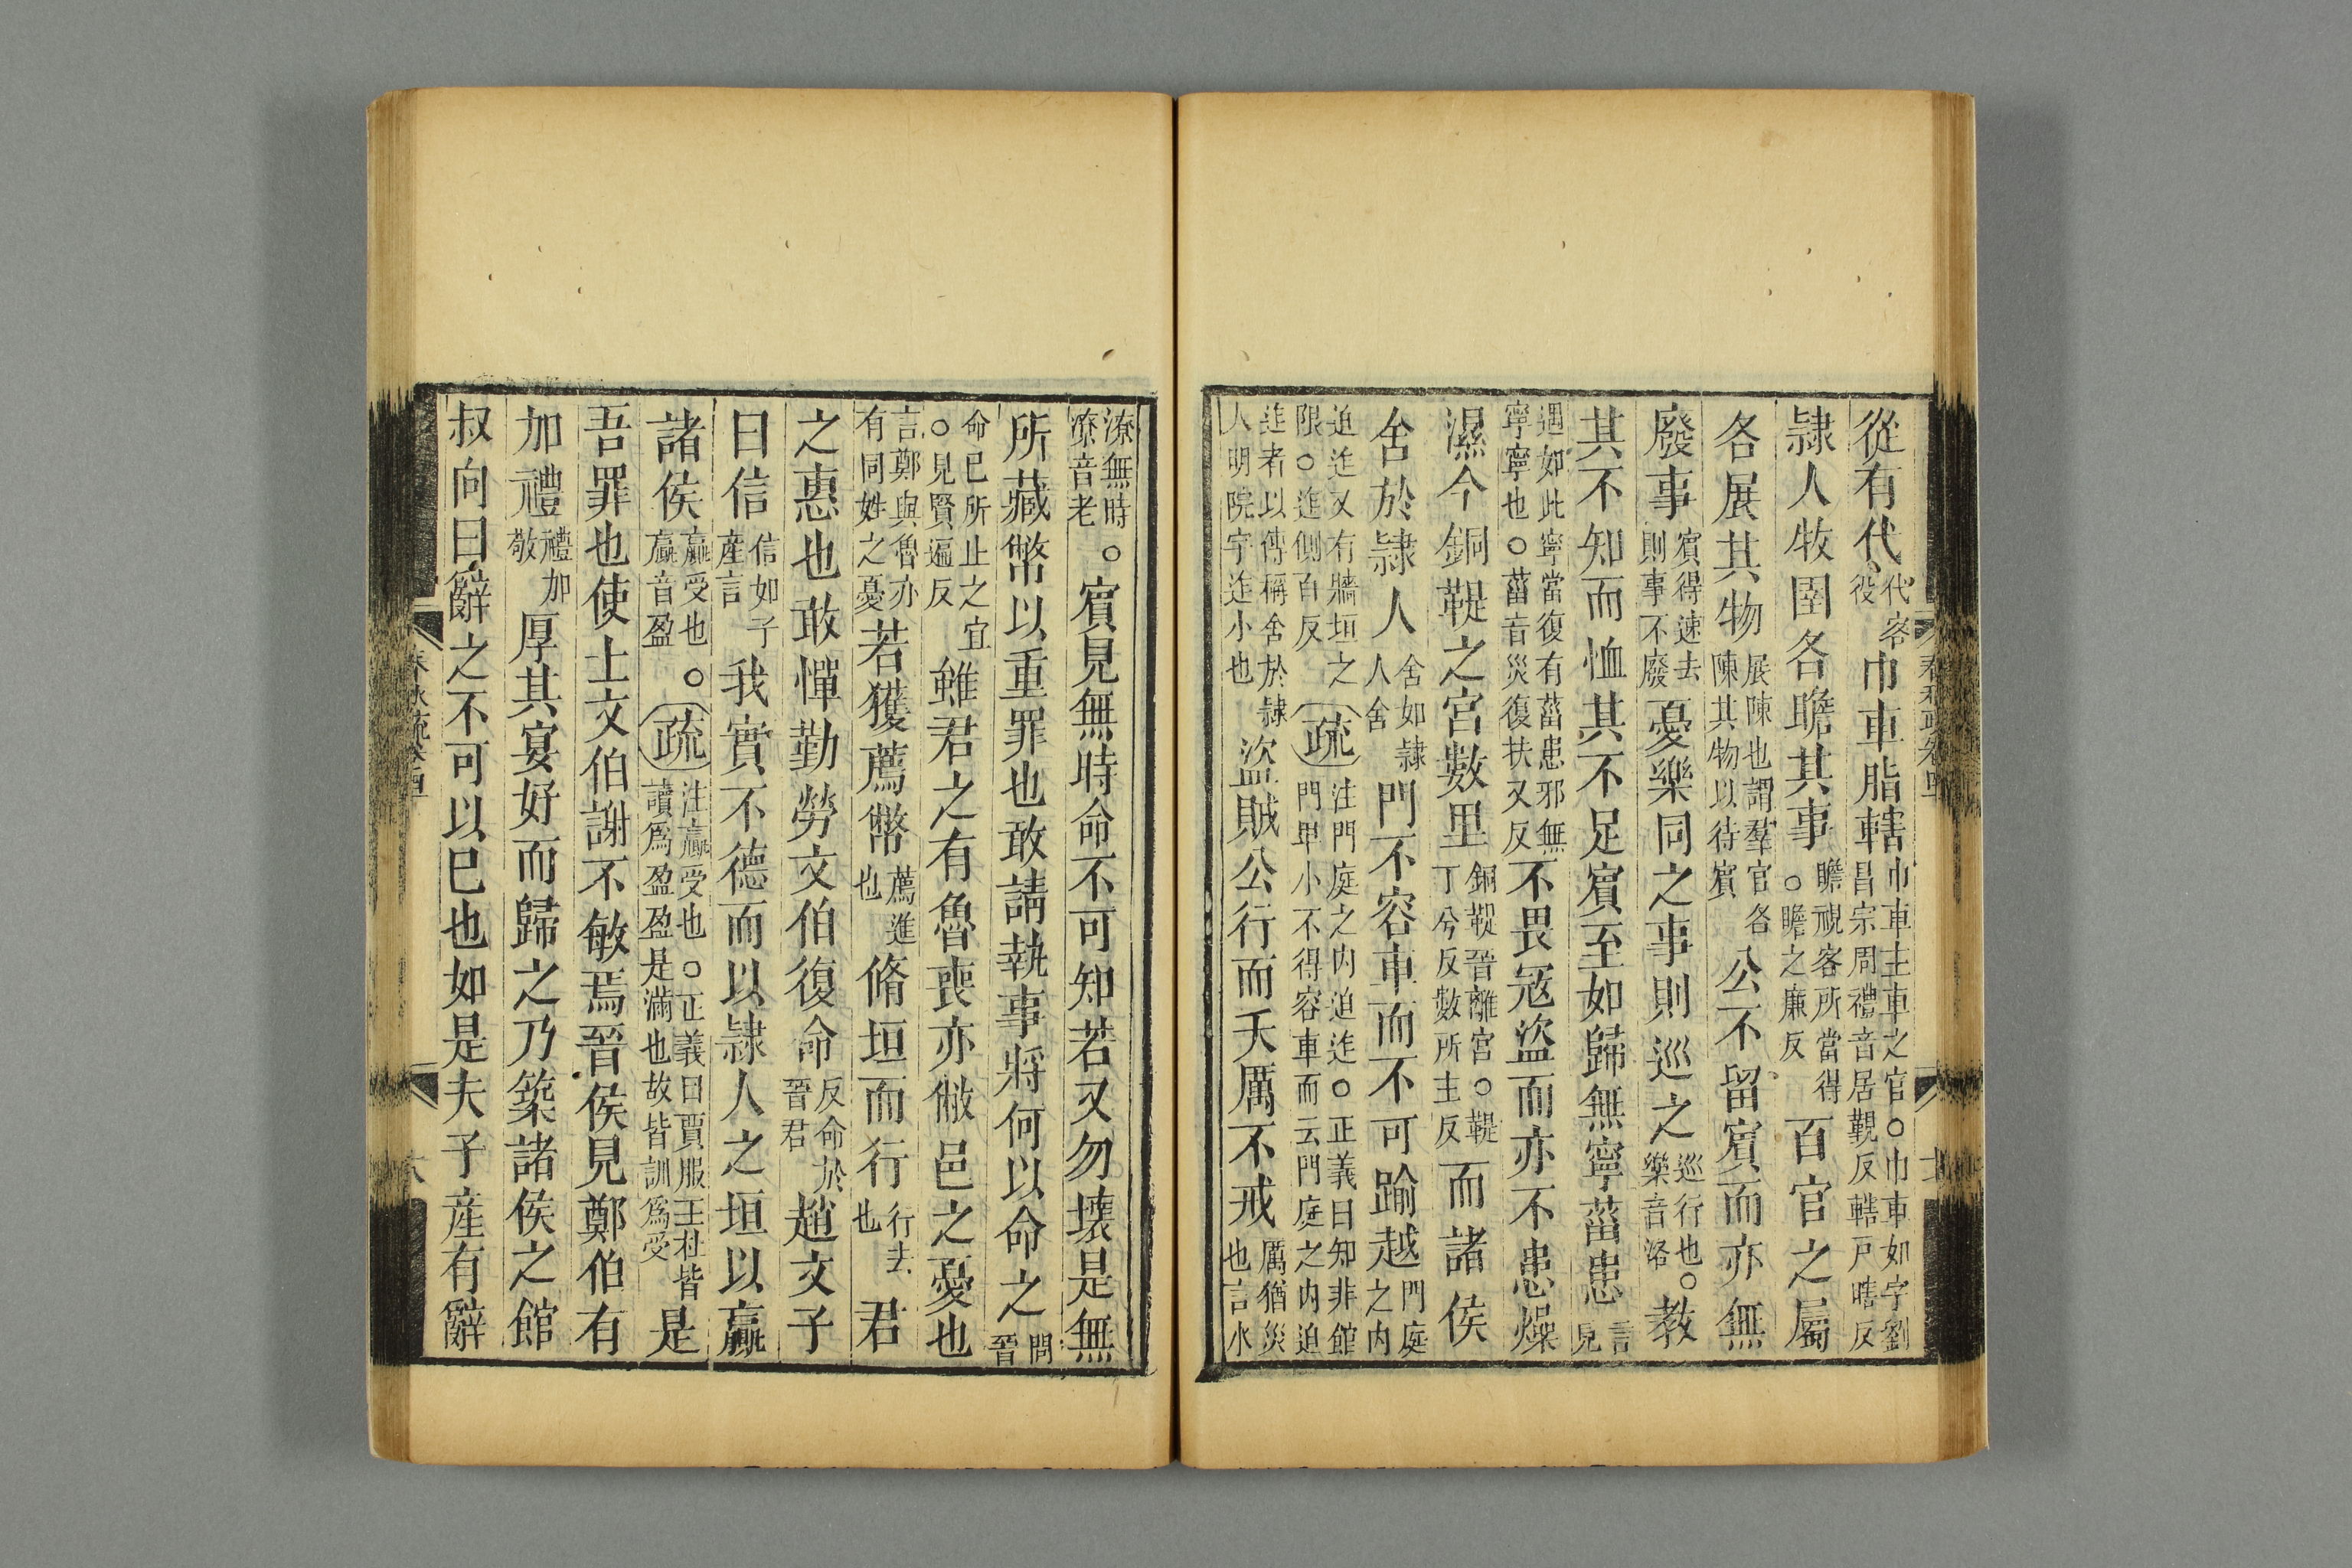 從有代代客役巾車脂轄巾車主車之官○巾車如字劉昌宗周禮音居覲反轄戸瞎反
隷人牧圉各瞻其事瞻視客所當得○瞻之廉反百官之屬
各展其物展陳也謂羣官各陳其物以待賓公不留賓而亦無
廢事賓得速去則事不廢憂樂同之事則巡之巡行也○樂音洛教
其不知而恤其不足賓至如歸無寧菑患言見
遇如此寧當復有菑患邪無寧寧也○菑音災復扶又反不畏寇盗而亦不患燥
濕今銅鞮之宮數里銅鞮晉離宮○鞮丁兮反數所主反而諸侯
舍於隷人舍如隷人舍門不容車而不可踰越門庭之内
迫迮又有牆垣之限○迮側百反疏注門庭之内迫迮○正義曰知非館門卑小不得容車而云門庭之内迫
迮者以傳稱舍於隷人明院宇迮小也盗賊公行而夭厲不戒厲猶災也言水
潦無時潦音老○賓見無時命不可知若又勿壞是無
所藏幣以重罪也敢請執事將何以命之問晉
命已所止之宜○見賢遍反雖君之有魯喪亦敝邑之憂也
言鄭與魯亦有同姓之憂若獲薦幣薦進也脩垣而行行去也君
之惠也敢憚勤勞文伯復命反命於晉君趙文子
曰信信如子産言我實不德而以隷人之垣以贏
諸侯贏受也○贏音盈疏注贏受也○正義曰賈服王杜皆讀爲盈盈是滿也故皆訓爲受是
吾罪也使士文伯謝不敏焉晉侯見鄭伯有
加禮禮加敬厚其宴好而歸之乃築諸侯之館
叔向曰辭之不可以已也如是夫子産有辭